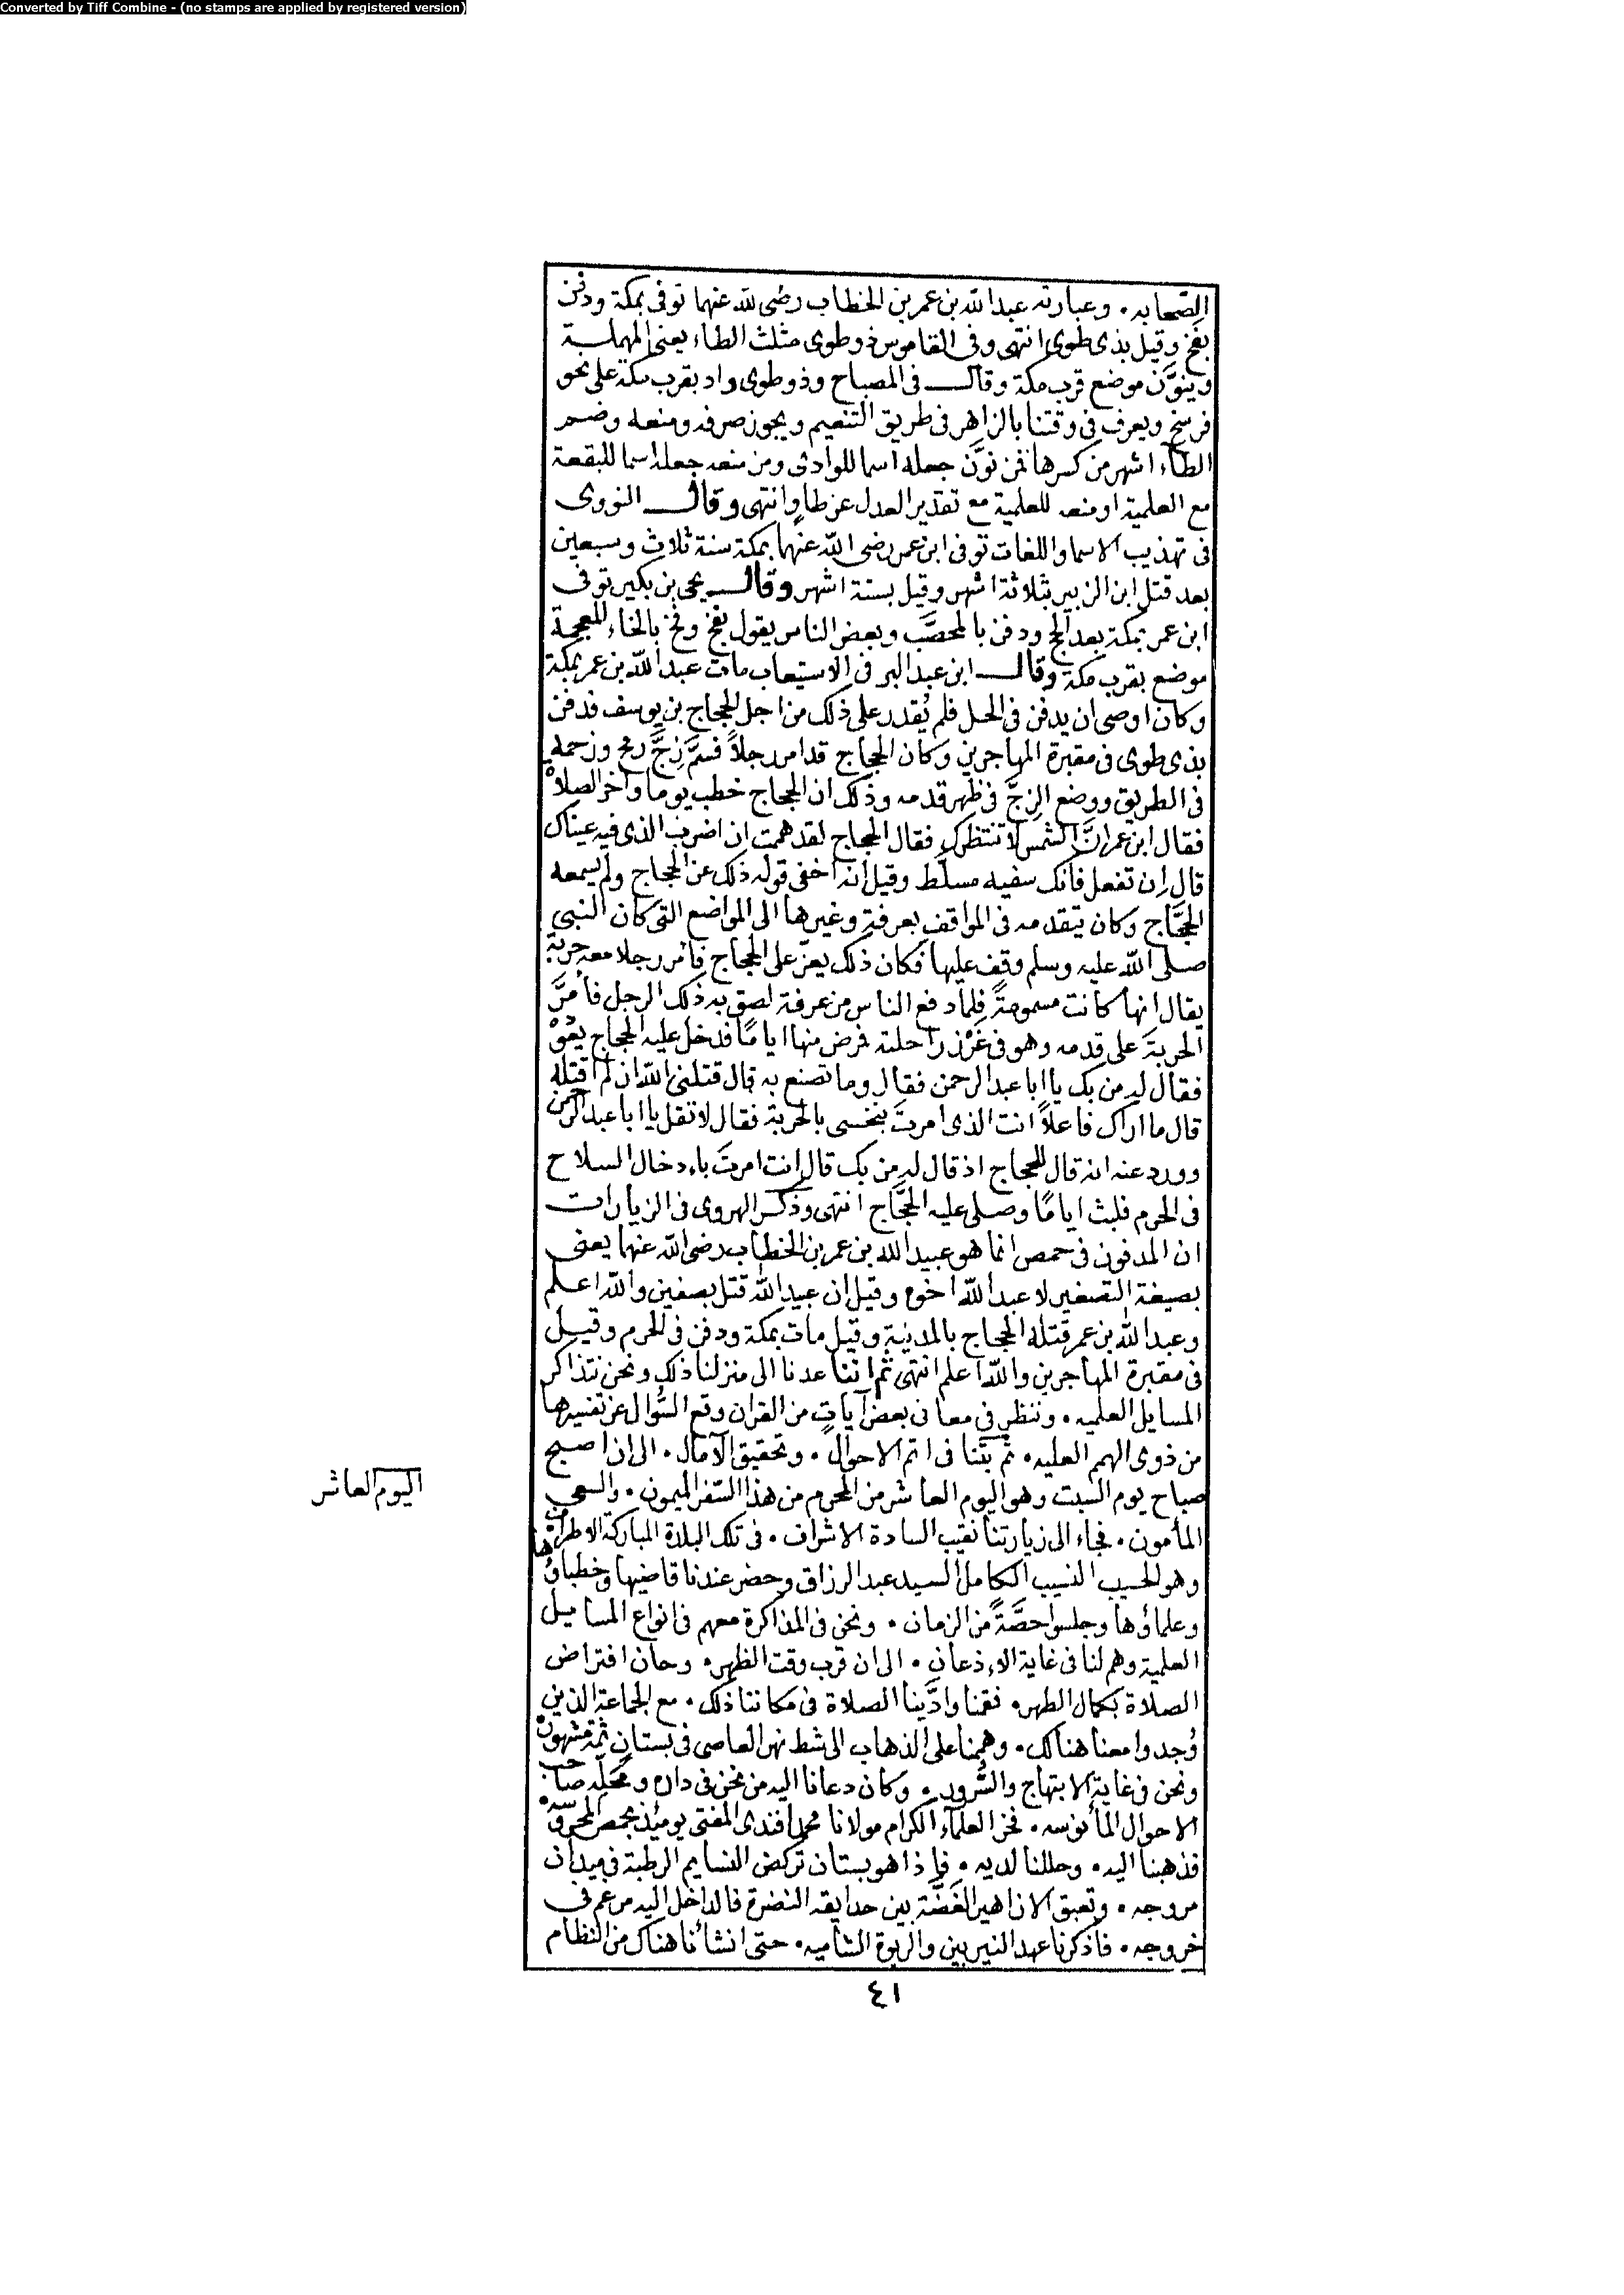 Converted by Tiff Combine - (no stamps are applied by registered version)
الصحابه . وعبارته عبد الله بن عمر بن الخطاب رضى الله عنهما توفى بمكة ودفن
بفخ وقيل بذى طوى انتهى وفى القاموس ذوطوى مثلث الطاء يعنى المهملة
وينوّن موضع قرب مكة وقال فى المصباح وذو طوى واد بقرب مكة على نحو
فرسخ ويعرف فى وقتنا بالزاهر فى طريق التنعيم ويجوز صرفه ومنعه وضم
الطاء اشهر من كسرها فمن نوّن جعله اسما للوادى ومن منعه جعله اسما للبقعة
مع العلمية او منعه للعلمية مع تقدير العدل عن طاوٍ انتهى وقال النووى
فى تهذيب الاسما واللغات توفى ابن عمر رضى الله عنهما بمكة سنة ثلاث وسبعين
بعد قتل ابن الزبير بثلاثة اشهر وقيل بستة اشهر وقال يحيى بن بكير توفى
ابن عمر بمكة بعد الحج ودفن بالمحصَّب وبعض الناس يقول بفخ وفخ بالخاء المعجمة
موضع بقرب مكة وقال ابن عبد البر فى الاستيعاب مات عبد الله بن عمر بمكة
وكان اوصى ان يدفن فى الحل فلم يُقدر على ذلك من اجل الحجاج بن يوسف فدفن
بذى طوى فى مقبرة المهاجرين وكان الحجاج قد امر رجلاً فسمَّ زجَّ رمح وزحمه
فى الطريق ووضع الزجَّ فى ظهر قدمه وذلك ان الحجاج خطب يوما واخر الصلاة
فقال ابن عمر انَّ الشمس لا تنتظرك فقال الحجاج لقد هممت ان اضرب الذى فيه عيناك
قال اِن تفعل فانك سفيه مسلّط وقيل انه اخفى قوله ذلك عن الحجاج ولم يسمعه
الحجَّاج وكان يتقدمه فى المواقف بعرفة وغيرها الى المواضع التى كان النبى
صلى الله عليه وسلم وقف عليها فكان ذلك يعزّ على الحجاج فأمر رجلا معه حربة
يقال انها كانت مسمومةً فلما دفع الناس من عرفة لصق به ذلك الرجل فأمرَّ
الحربة على قدمه وهو فى غَرْز راحلته فمرض منها اياماً فدخل عليه الحجاج يعوده
فقال له من بك يا ابا عبد الرحمن فقال وما تصنع به قال قتلنى الله ان لم اقتله
قال ما اراك فاعلاً انت الذى امرتَ بنخسى بالحربة فقال لا تقل يا ابا عبد الرحمن
وورد عنه انه قال للحجاج اذ قال له من بك قال انت امرتَ بادخال السلاح
فى الحرم فلبث اياماً وصلى عليه الحجَّاج انتهى وذكر الهروى فى الزيارات
ان المدفون فى حمص انما هو عبيد الله بن عمر بن الخطاب رضى الله عنهما يعنى
بصيغة التصغير لا عبد الله اخوه وقيل ان عبيد الله قتل بصفين والله اعلم
وعبد الله بن عمر قتله الحجاج بالمدينة وقيل مات بمكة ودفن فى الحرم وقيل
فى مقبرة المهاجرين والله اعلم انتهى ثم اننا عدنا الى منزلنا ذلك ونحن نتذاكر
المسايل العلميه . وننظر فى معانى بعض آيات من القران وقع السُّوال عن تفسيرها
من ذوى الهمم العليه . ثم بتنا فى اتم الاحوال . وتحقيق الآمال . الى ان اصبح
صباح يوم السبت وهو اليوم العاشر من المحرم من هذا السّفر الميمون . والسعى
اليوم العاشر
المأمون . فجاء الى زيارتنا نقيب السادة الاشراف . فى تلك البلدة المباركة الاطراف
وهو الحسيب النسيب الكامل السيد عبد الرزاق وحضر عندنا قاضيها وخطباؤها
وعلماؤها وجلسوا حصَّةً من الزمان . ونحن فى المذاكرة معهم فى انواع المسايل
العلمية وهم لنا فى غاية الاذعان . الى ان قرب وقت الظهر . وحان افتراض
الصلاة بكمال الطهر . فقمنا وادَّينا الصلاة فى مكاننا ذلك . مع الجماعة الذين
وُجدوا معنا هنالك . وهممنا على الذهاب الى شط نهر العاصى فى بستان ثمة مشهور
ونحن فى غاية الابتهاج والسُّرور . وكان دعانا اليه من نحن فى داره ومحلّه صاحب
الاحوال المأنوسه . فخر العلماء الكرام مولانا محمد افندى المفتى يومئذ بحمص المحروسه
فذهبنا اليه . وحللنا لديه . فاذا هو بستان تركض النسايم الرطبة فى ميدان
مروجه . وتعبق الازاهير الغَضَّة بين حدايقه النضرة فالداخل اليه مرغم فى
خروجه . فاذكرنا عهد النيربين والربوة الشاميه . حتى انشأنا هناك من النظام
٤١